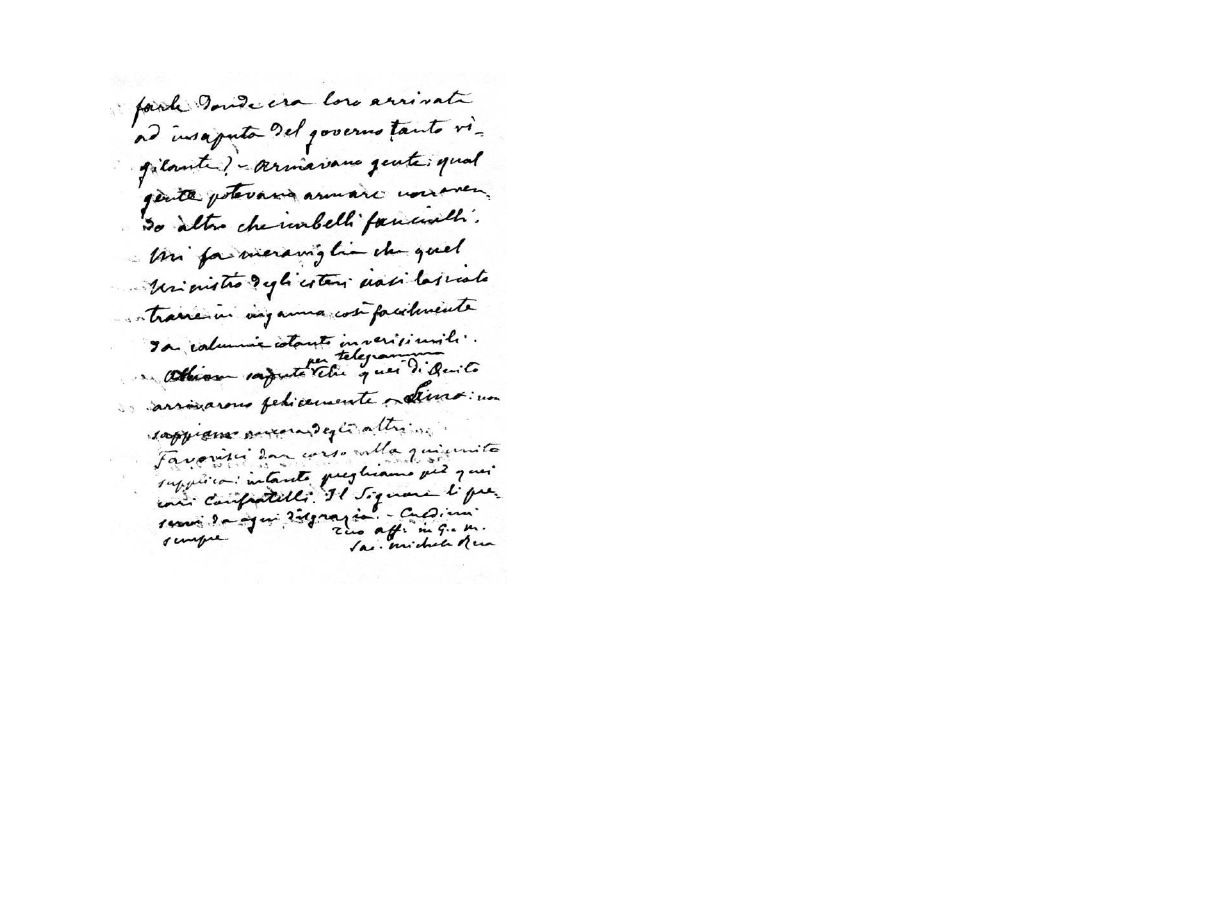 farle donde era loro arrivata
ad insaputa del governo tanto vi-
gilante? - Armavano gente: qual
gente potevano armare non aven-
do altro che imbelli fanciulli.
Mi fa meraviglia che quel
Ministro degli esteri siasi lasciato
trarre in inganno così facilmente
da calunnie cotanto inverisimili.
per telegramma
Abbiam saputo che quei di Quito
arrivarono felicemente a Lima: non
sappiamo ancora degli altri.
Favorisci dar corso alla qui unita
supplica: intanto preghiamo per quei
cari Confratelli. Il Signore li pre-
servi da ogni disgrazia. - Credimi
sempre
Tuo aff. in G. e M.
Sac. Michele Rua